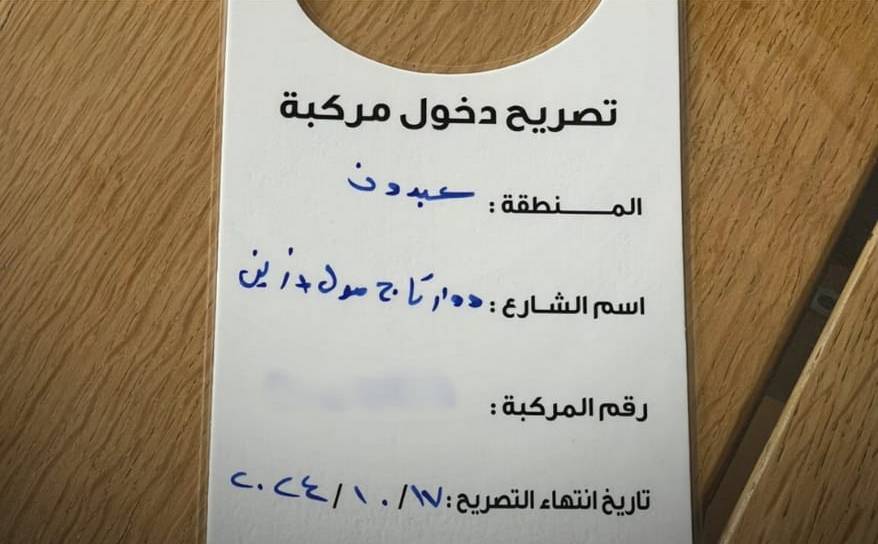 تصريح دخول مركبة
المنطقة : عبدون
اسم الشارع : دوار تاج مول + زين
رقم المركبة :
تاريخ انتهاء التصريح : ١٧/١٠/٢٠٢٤